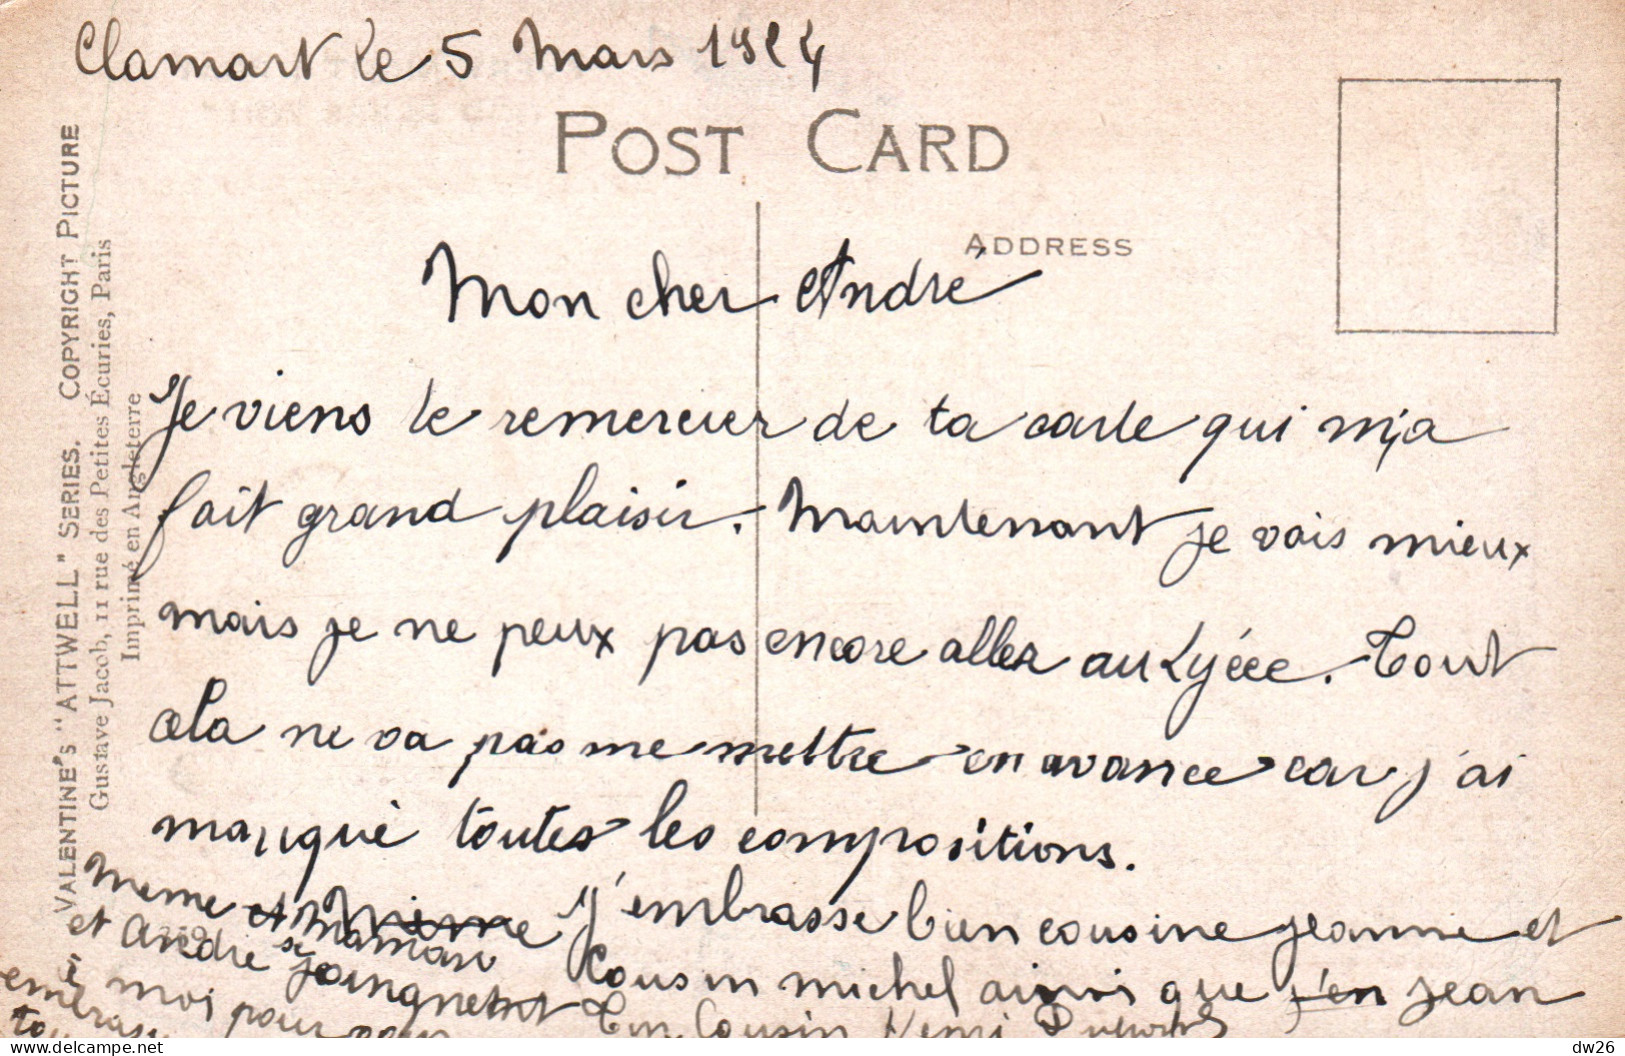 Clamart le 5 Mars 1924
POST CARD
ADDRESS
VALENTINE'S "ATTWELL" SERIES. COPYRIGHT PICTURE
Gustave Jacob, 11 rue des Petites Écuries, Paris
Imprimé en Angleterre
Mon cher André
Je viens te remercier de ta carte qui m'a
fait grand plaisir. Maintenant je vais mieux
mais je ne peux pas encore aller au Lycée. Tout
cela ne va pas me mettre en avance car j'ai
manqué toutes les compositions.
J'embrasse bien cousine jeanne et
Cousin michel ainsi que j'en jean
Ton Cousin Remi
Meme et maman
et André se joingnent
à moi pour